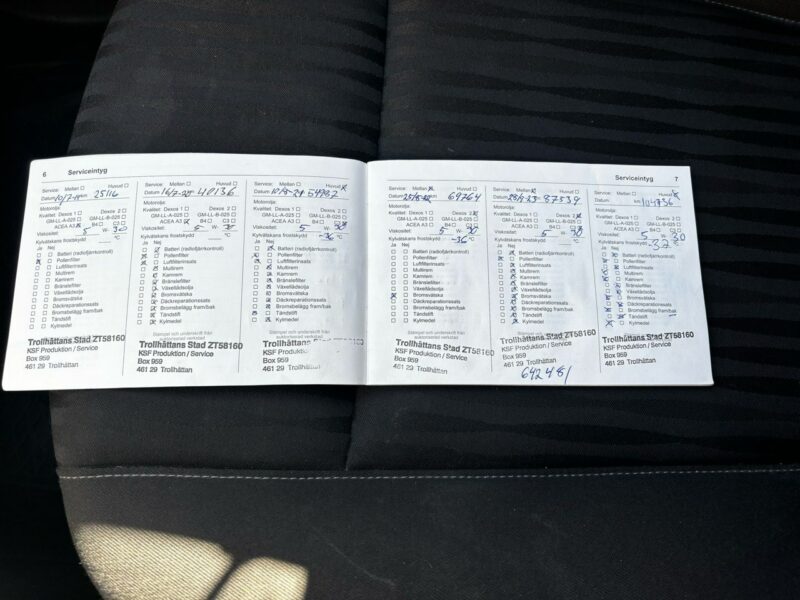 6 Serviceintyg
Service: Mellan Huvud
Datum km 25116
Motorolja:
Kvalitet: Dexos 1 Dexos 2
GM-LL-A-025 GM-LL-B-025
ACEA A3 B4 C3
Viskositet: 5 W- 30
Kylvätskans frostskydd °C
Ja Nej
Batteri (radiofjärrkontroll)
Pollenfilter
Luftfilterinsats
Multirem
Kamrem
Bränslefilter
Växellådsolja
Bromsvätska
Däckreparationssats
Bromsbelägg fram/bak
Tändstift
Kylmedel
Trollhättans Stad ZT58160
KSF Produktion / Service
Box 959
461 29 Trollhättan
Service: Mellan Huvud
Datum 40136
Motorolja:
Kvalitet: Dexos 1 Dexos 2
GM-LL-A-025 GM-LL-B-025
ACEA A3 B4 C3
Viskositet: 5 W-
Kylvätskans frostskydd °C
Ja Nej
Batteri (radiofjärrkontroll)
Pollenfilter
Luftfilterinsats
Multirem
Kamrem
Bränslefilter
Växellådsolja
Bromsvätska
Däckreparationssats
Bromsbelägg fram/bak
Tändstift
Kylmedel
Trollhättans Stad ZT58160
KSF Produktion / Service
Box 959
461 29 Trollhättan
Service: Mellan Huvud
Datum
Motorolja:
Kvalitet: Dexos 1 Dexos 2
GM-LL-A-025 GM-LL-B-025
ACEA A3 B4 C3
Viskositet: 5 W-
Kylvätskans frostskydd -36 °C
Ja Nej
Batteri (radiofjärrkontroll)
Pollenfilter
Luftfilterinsats
Multirem
Kamrem
Bränslefilter
Växellådsolja
Bromsvätska
Däckreparationssats
Bromsbelägg fram/bak
Tändstift
Kylmedel
Stämpel och underskrift från
auktoriserad verkstad
Trollhättans
KSF Produktion
Box 959
461 29 Trollhättan
Serviceintyg 7
Service: Mellan Huvud
Datum km 69764
Motorolja:
Kvalitet: Dexos 1 Dexos 2
GM-LL-A-025 GM-LL-B-025
ACEA A3 B4 C3
Viskositet: 5 W- 30
Kylvätskans frostskydd -36 °C
Ja Nej
Batteri (radiofjärrkontroll)
Pollenfilter
Luftfilterinsats
Multirem
Kamrem
Bränslefilter
Växellådsolja
Bromsvätska
Däckreparationssats
Bromsbelägg fram/bak
Tändstift
Kylmedel
Stämpel och underskrift från
auktoriserad verkstad
Trollhättans Stad ZT58160
KSF Produktion / Service
Box 959
461 29 Trollhättan
Service: Mellan Huvud
Datum 87539
Motorolja:
Kvalitet: Dexos 1 Dexos 2
GM-LL-A-025 GM-LL-B-025
ACEA A3 B4 C3
Viskositet: 5 W- 30
Kylvätskans frostskydd °C
Ja Nej
Batteri (radiofjärrkontroll)
Pollenfilter
Luftfilterinsats
Multirem
Kamrem
Bränslefilter
Växellådsolja
Bromsvätska
Däckreparationssats
Bromsbelägg fram/bak
Tändstift
Kylmedel
Stämpel och underskrift från
auktoriserad verkstad
Trollhättans Stad ZT58160
KSF Produktion / Service
Box 959
461 29 Trollhättan
642481
Service: Mellan Huvud
Datum km 104736
Motorolja:
Kvalitet: Dexos 1 Dexos 2
GM-LL-A-025 GM-LL-B-025
ACEA A3 B4 C3
Viskositet: 5 W- 30
Kylvätskans frostskydd -37 °C
Ja Nej
Batteri (radiofjärrkontroll)
Pollenfilter
Luftfilterinsats
Multirem
Kamrem
Bränslefilter
Växellådsolja
Bromsvätska
Däckreparationssats
Bromsbelägg fram/bak
Tändstift
Kylmedel
Trollhättans Stad ZT58160
KSF Produktion / Service
Box 959
461 29 Trollhättan